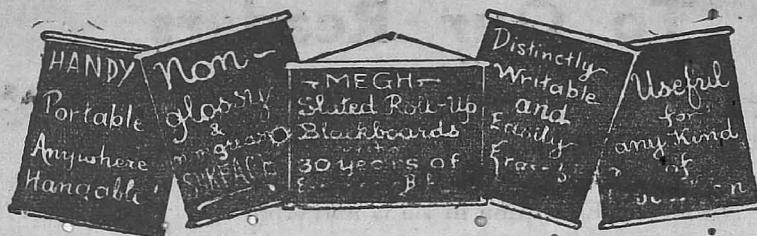 HANDY
Portable
Anywhere
Hangable
Non-
glossy
&
SURFACE
MEGH
Slated Roll-up
Blackboards
30 years of
Distinctly
Writable
and
Easily
Useful
for
any Kind
of